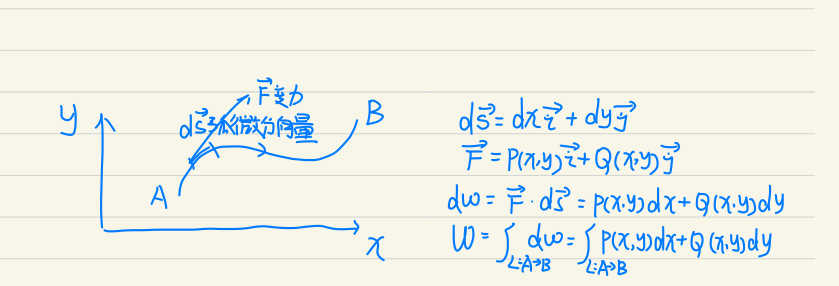 y
F⃗变力
ds⃗弧微分向量
B
A
x
ds⃗=dxi⃗+dyj⃗
F⃗=P(x,y)i⃗+Q(x,y)j⃗
dw=F⃗·ds⃗=P(x,y)dx+Q(x,y)dy
W=∫_{L:A→B}dw=∫_{L:A→B}P(x,y)dx+Q(x,y)dy